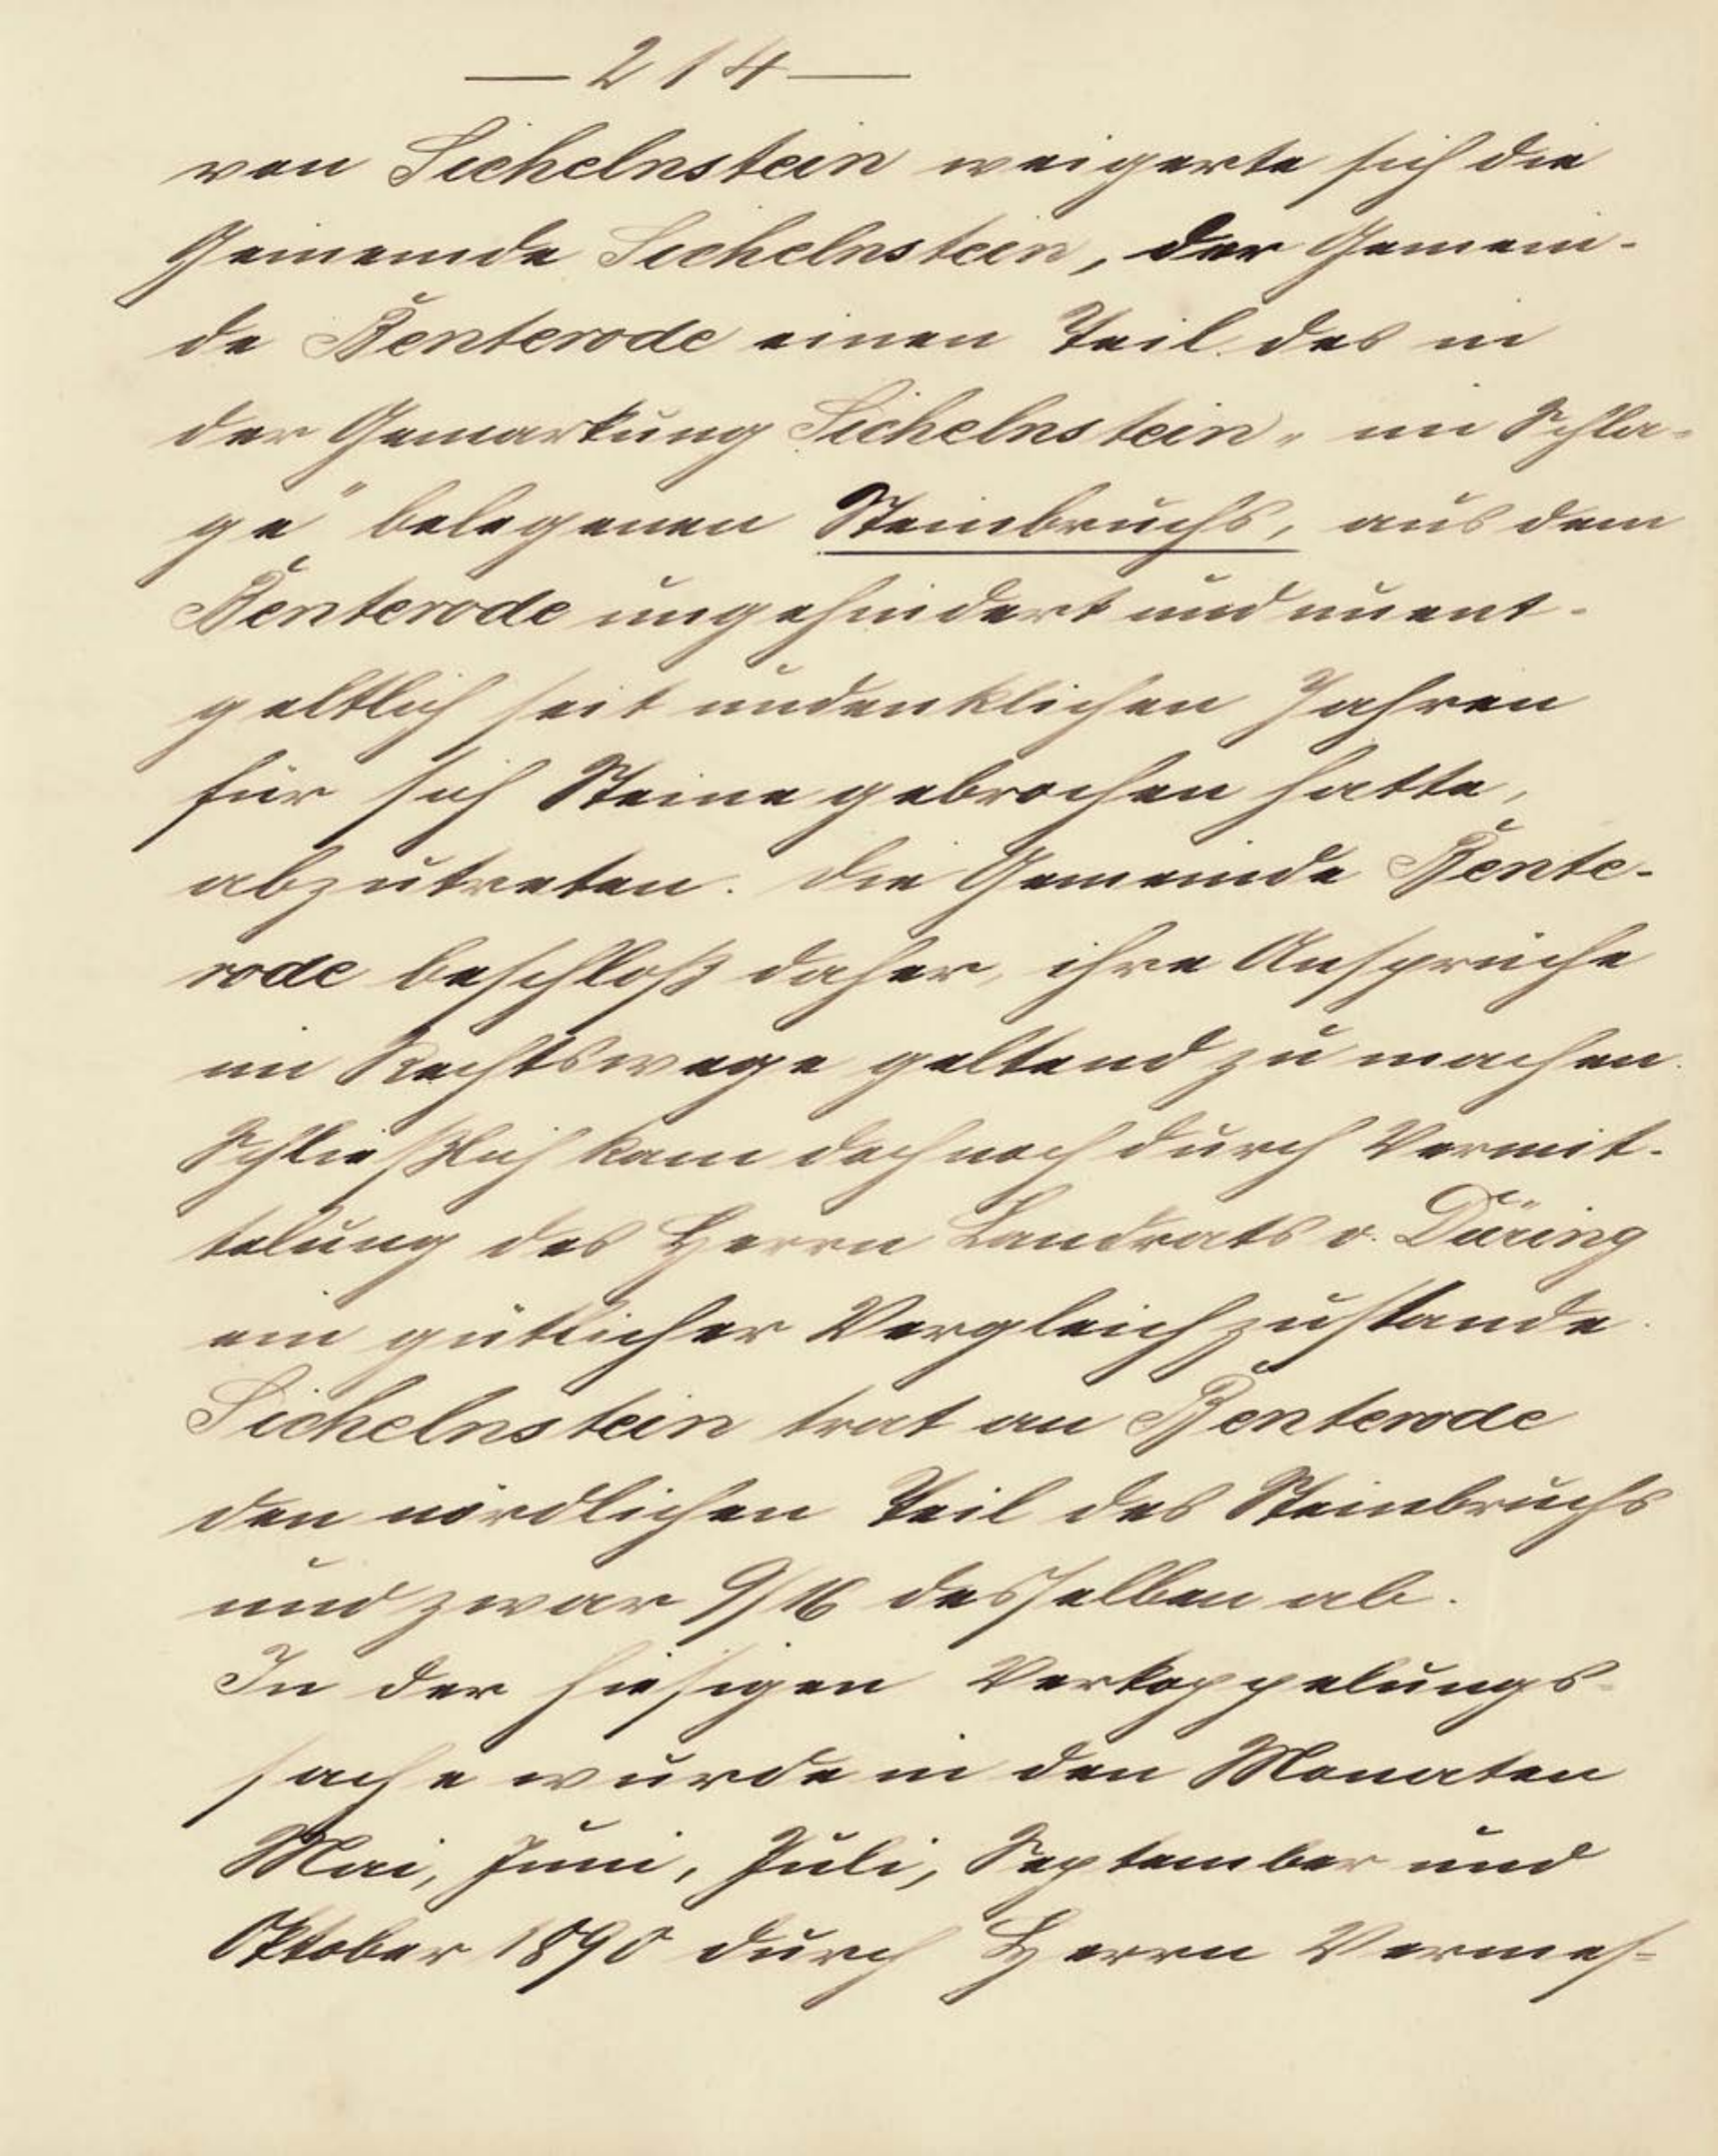 — 214 —
von Sichelnstein weigerte sich die
Gemeinde Sichelnstein, der Gemein-
de Benterode einen Teil des in
der Gemarkung Sichelnstein „im Schla-
ge" belegenen Steinbruchs, aus dem
Benterode ungehindert und unent-
geltlich seit undenklichen Jahren
für sich Steine gebrochen hatte,
abzutreten. Die Gemeinde Bente-
rode beschloß daher, ihre Ansprüche
im Rechtswege geltend zu machen.
Schließlich kam doch noch durch Vermit-
telung des Herrn Landrats v. Düring
ein gütlicher Vergleich zustande.
Sichelnstein trat an Benterode
den nördlichen Teil des Steinbruchs
und zwar 9/16 desselben ab.
In der hiesigen Verkoppelungs-
sache wurde in den Monaten
Mai, Juni, Juli, September und
Oktober 1890 durch Herrn Vermes-